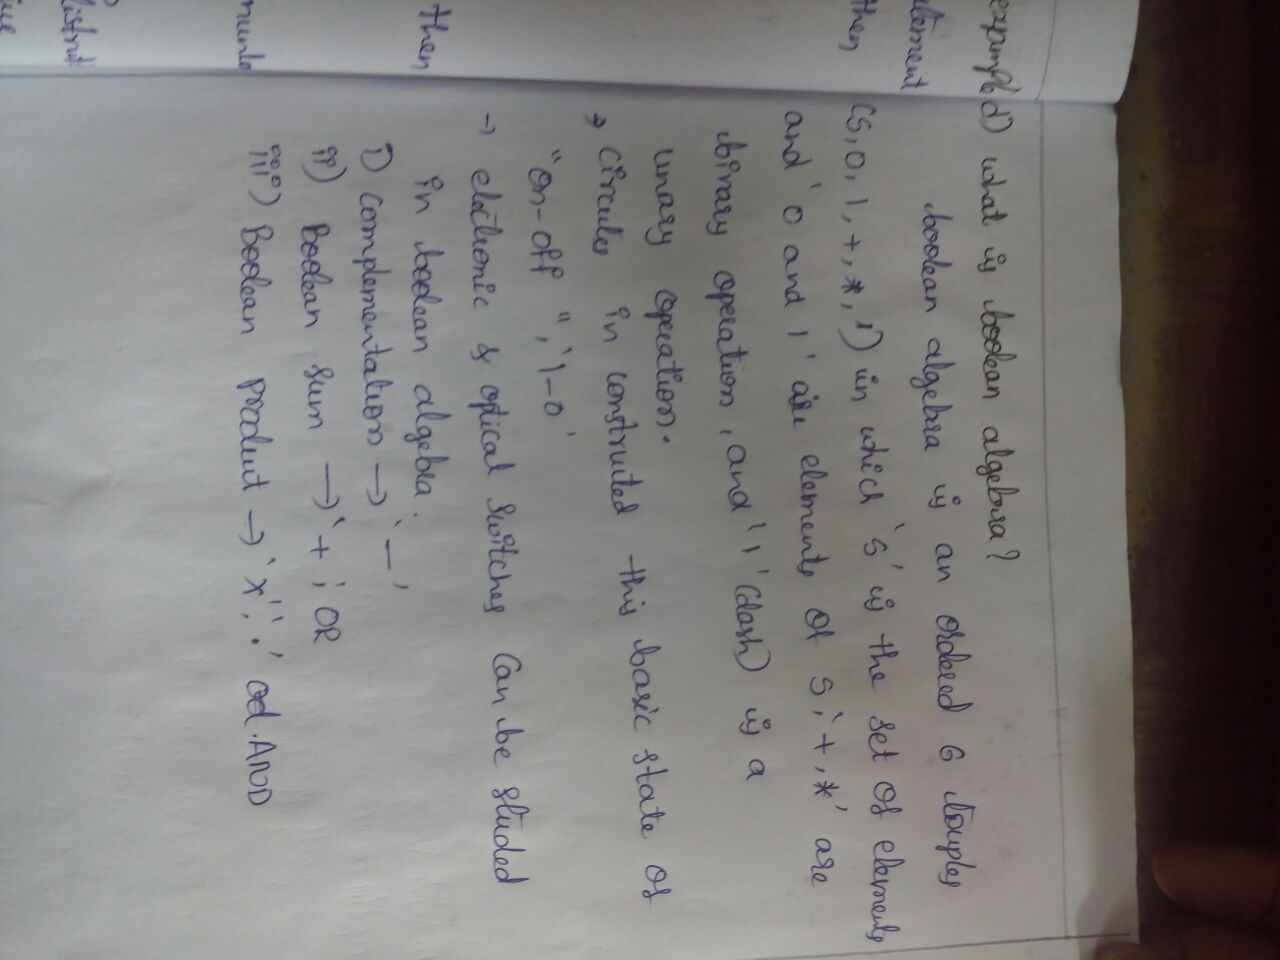 d) what is boolean algebra?
boolean algebra is an ordered 6 touples
(S, 0, 1, +, *, ') in which 'S' is the set of elements
and '0 and 1' are elements of S, '+, *' are
binary operation, and ''' (dash) is a
unary operation.
→ Circuits in construted this basic state of
"on-off", '1-0'
→ electronic & optical switches can be studed
in boolean algebra;
i) Complementation → '—'
ii) Boolean sum → '+; OR
iii) Boolean product → 'x' '.' od. AND
example
then
then